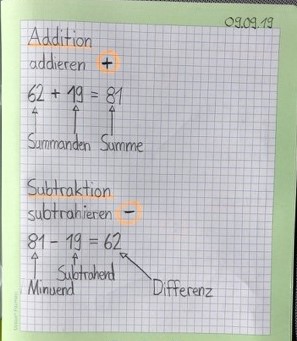 09.09.19
Addition
addieren +
62 + 19 = 81
Summanden Summe
Subtraktion
subtrahieren -
81 - 19 = 62
Subtrahend
Minuend Differenz